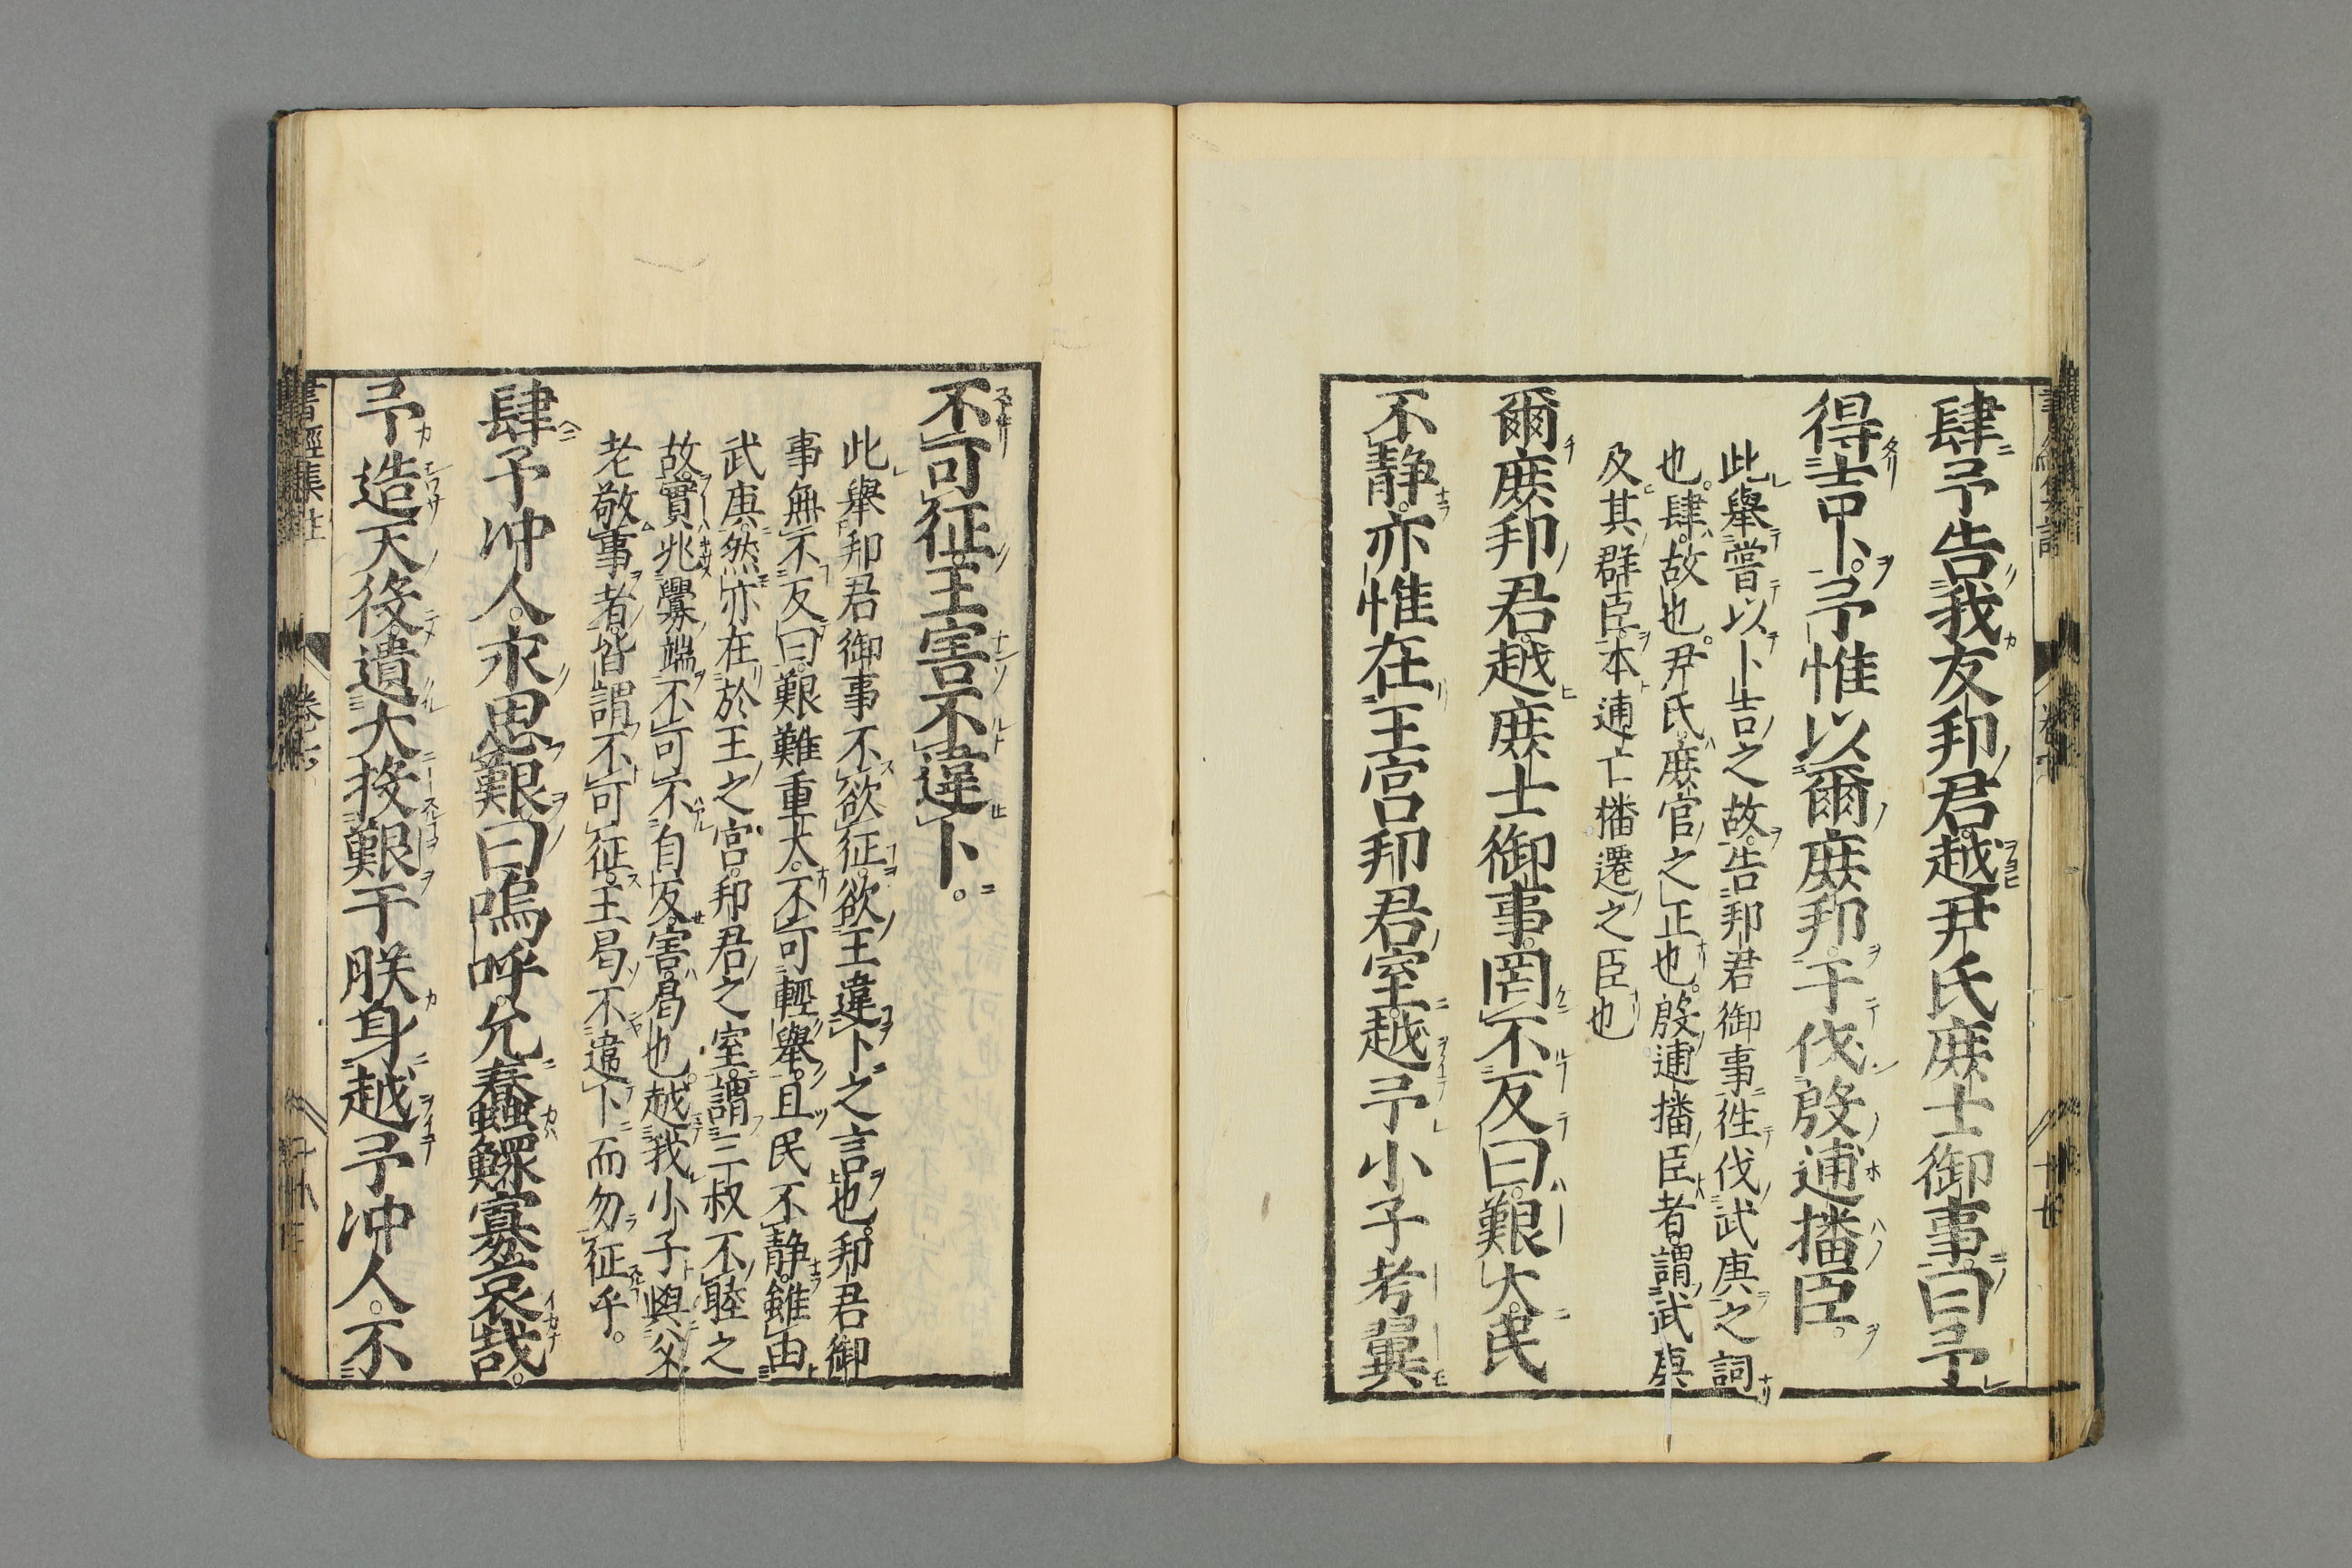 肆予告我友邦君越尹氏庶士御事曰予
得吉卜。予惟以爾庶邦于伐殷逋播臣。
此舉嘗以卜吉之故。告邦君御事徃伐武庚之詞
也。肆。故也。尹氏。庶官之正也。殷逋播臣者。謂武庚
及其群臣。本逋亡播遷之臣也
爾庶邦君越庶士御事罔不反曰。艱大。民
不静。亦惟在王宮邦君室。越予小子考翼
不可征。王害不違卜。
此舉邦君御事不欲征。欲王違卜之言也。邦君御
事無不反曰。艱難重大。不可輕舉。且民不静。雖由
武庚。然亦在於王之宮。邦君之室。謂三叔不睦之
故。實兆釁端。不可不自反。害。曷也。越我小子與父
老敬事者。皆謂不可征。王曷不違卜而勿征乎。
肆予冲人。永思艱。曰嗚呼。允蠢鰥寡。哀哉。
予造天役。遺大投艱于朕身。越予冲人。不
書經集註
卷六